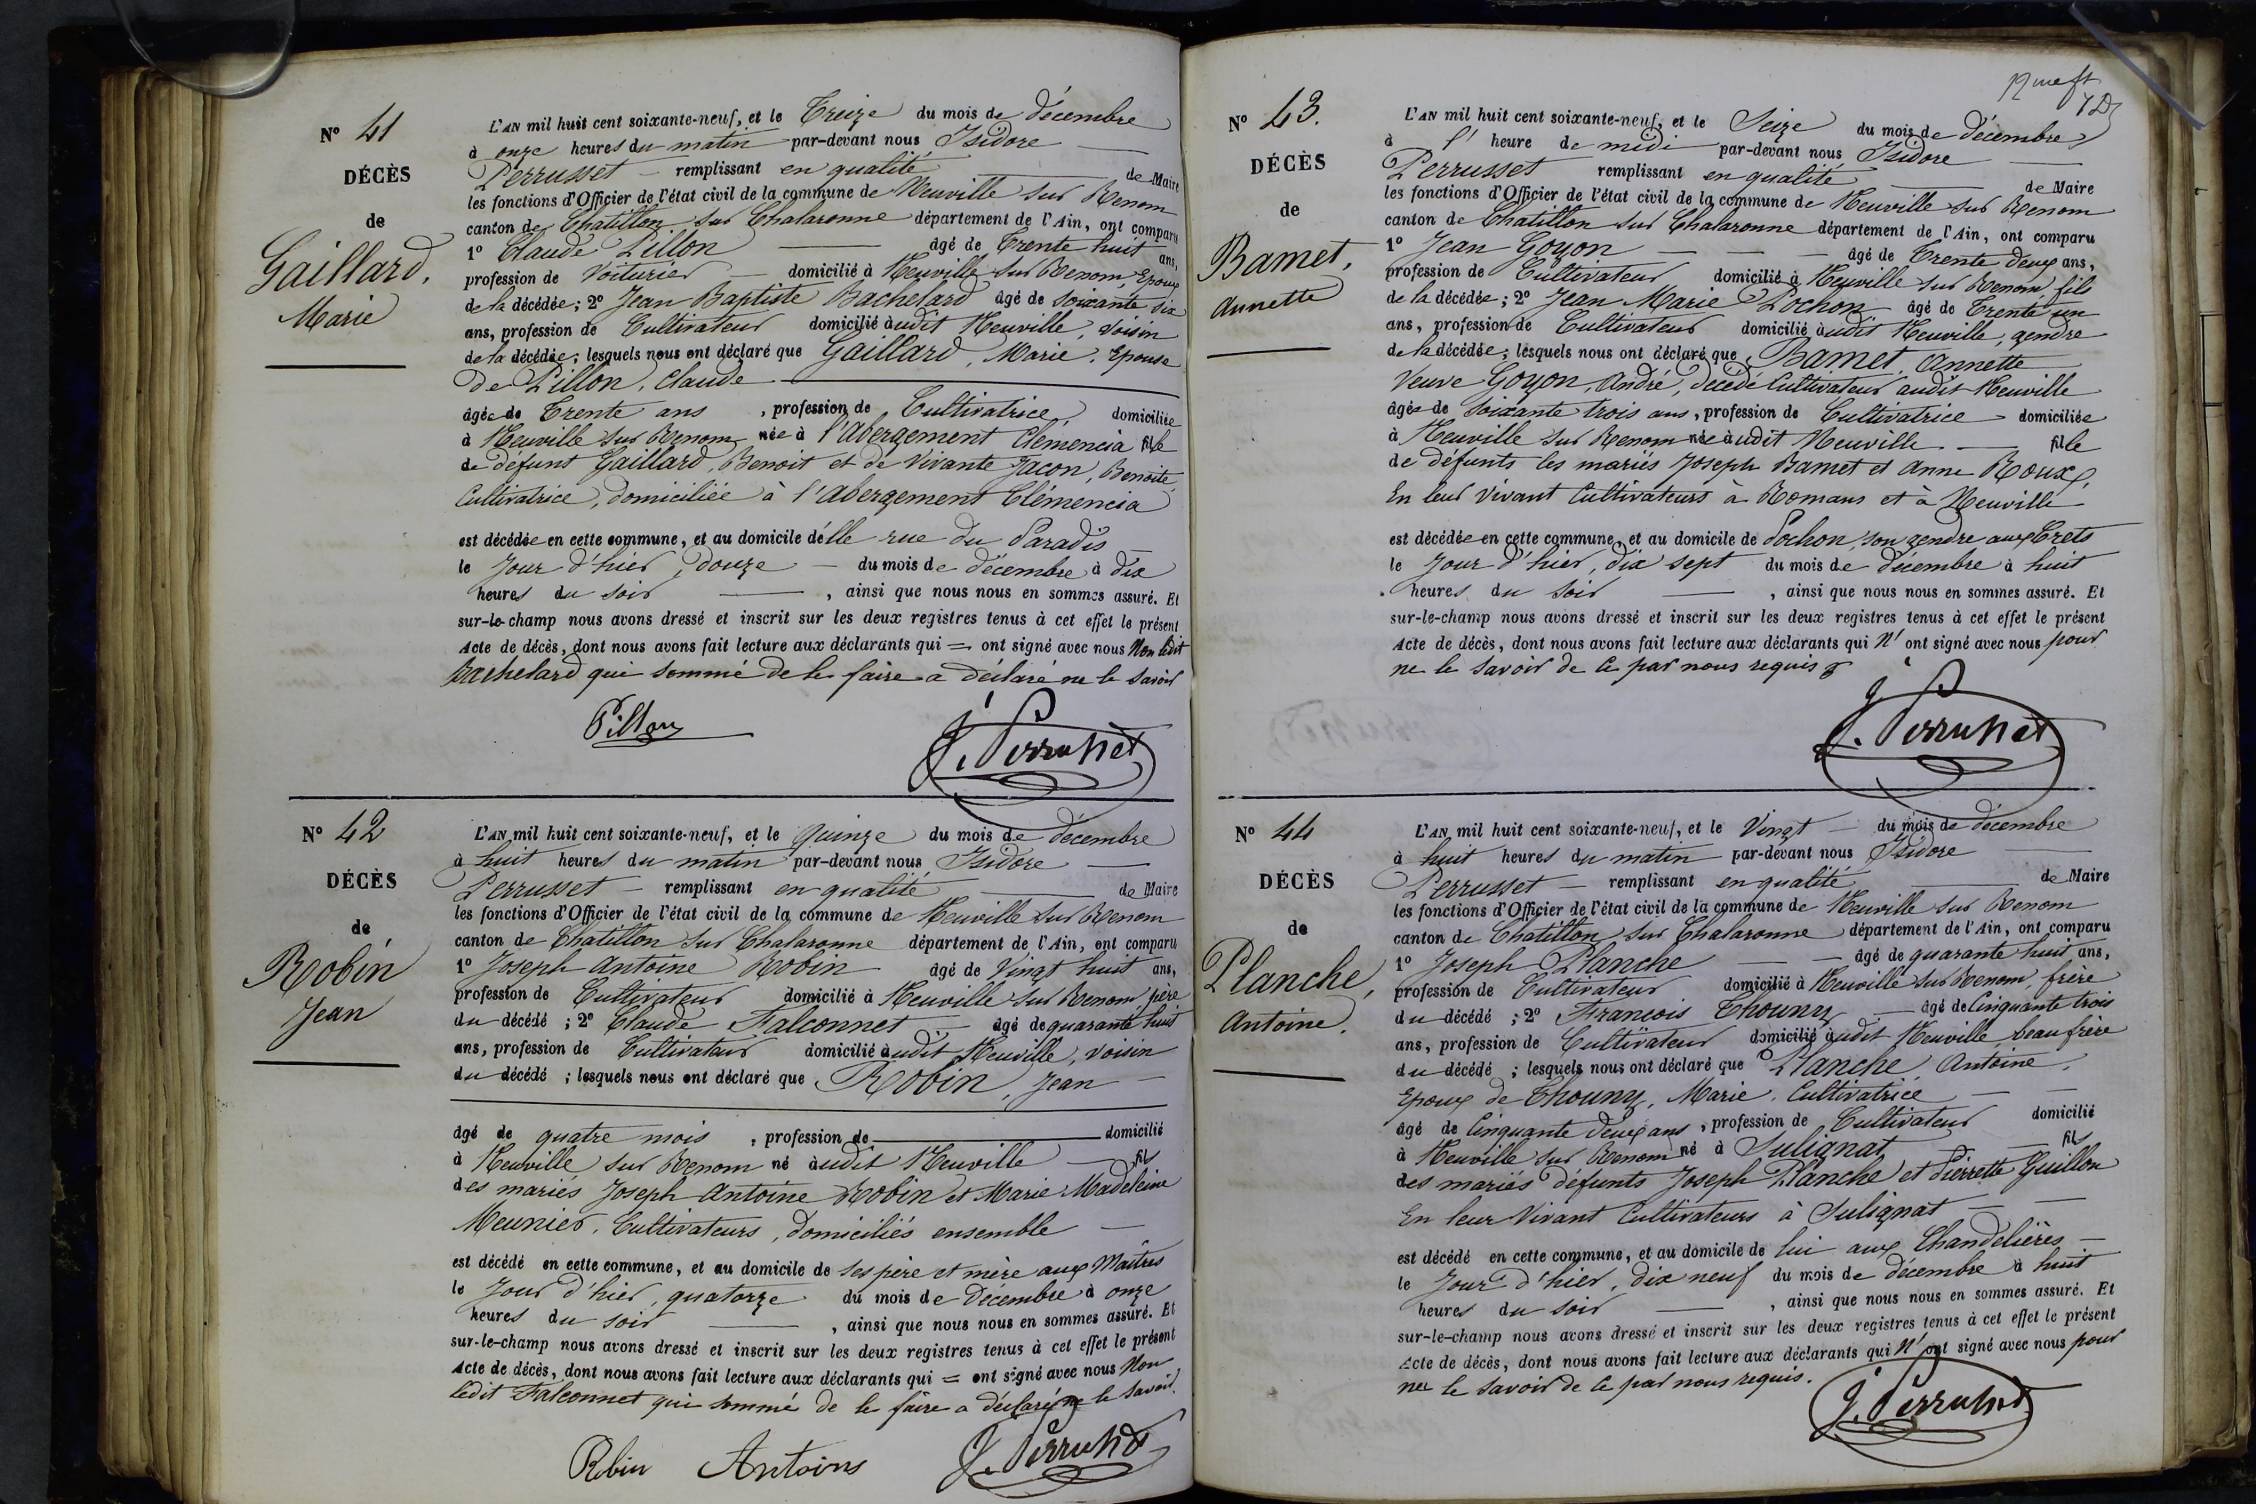 N° 41
DÉCÈS
de
Gaillard,
Marie
L'AN mil huit cent soixante-neuf, et le Treize du mois de décembre
à onze heures du matin par-devant nous Isidore
Perrusset remplissant en qualité de Maire
les fonctions d'Officier de l'état civil de la commune de Neuville sur Renom
canton de Chatillon sur Chalaronne département de l'Ain, ont comparu
1° Claude Pillon âgé de Trente huit ans,
profession de Voiturier domicilié à Neuville sur Renom, Epoux
de la décédée; 2° Jean Baptiste Bachelard âgé de soixante six
ans, profession de Cultivateur domicilié audit Neuville, voisin
de la décédée; lesquels nous ont déclaré que Gaillard, Marie, Epouse
de Pillon, Claude
âgée de Trente ans, profession de Cultivatrice, domiciliée
à Neuville sur Renom, née à l'Abergement Clémencia fille
de défunt Gaillard, Benoit et de vivante Jacon, Benoite,
Cultivatrice, domiciliée à l'Abergement Clémencia
est décédée en cette commune, et au domicile d'elle rue du Paradis
le Jour d'hier, douze du mois de décembre à dix
heures du soir, ainsi que nous nous en sommes assuré. Et
sur-le-champ nous avons dressé et inscrit sur les deux registres tenus à cet effet le présent
Acte de décès, dont nous avons fait lecture aux déclarants qui = ont signé avec nous Non ledit
Bachelard qui sommé de le faire a déclaré ne le savoir
Pillon
J. Perrusset
N° 42
DÉCÈS
de
Robin
Jean
L'AN mil huit cent soixante-neuf, et le quinze du mois de décembre
à huit heures du matin par-devant nous Isidore
Perrusset remplissant en qualité de Maire
les fonctions d'Officier de l'état civil de la commune de Neuville sur Renom
canton de Chatillon sur Chalaronne département de l'Ain, ont comparu
1° Joseph Antoine Robin âgé de Vingt huit ans,
profession de Cultivateur domicilié à Neuville sur Renom père
du décédé; 2° Claude Falconnet âgé de quarante huit
ans, profession de Cultivateur domicilié audit Neuville, voisin
du décédé; lesquels nous ont déclaré que Robin, Jean
âgé de quatre mois, profession de domicilié
à Neuville sur Renom né audit Neuville fils
des mariés Joseph Antoine Robin et Marie Madeleine
Meunier, Cultivateurs, domiciliés ensemble
est décédé en cette commune, et au domicile de ses père et mère aux Maîtres
le Jour d'hier, quatorze du mois de décembre à onze
heures du soir, ainsi que nous nous en sommes assuré. Et
sur-le-champ nous avons dressé et inscrit sur les deux registres tenus à cet effet le présent
Acte de décès, dont nous avons fait lecture aux déclarants qui = ont signé avec nous Non
ledit Falconnet qui sommé de le faire a déclaré ne le savoir.
Robin Antoine
J. Perrusset
N° 43.
DÉCÈS
de
Bamet,
Annette
L'AN mil huit cent soixante-neuf, et le Seize du mois de décembre
à l' heure de midi par-devant nous Isidore
Perrusset remplissant en qualité de Maire
les fonctions d'Officier de l'état civil de la commune de Neuville sur Renom
canton de Chatillon sur Chalaronne département de l'Ain, ont comparu
1° Jean Goyon âgé de Trente deux ans,
profession de Cultivateur domicilié à Neuville sur Renom fils
de la décédée; 2° Jean Marie Pochon âgé de Trente un
ans, profession de Cultivateur domicilié audit Neuville, gendre
de la décédée; lesquels nous ont déclaré que Bamet, Annette
Veuve Goyon, André, décédé Cultivateur audit Neuville
âgée de soixante trois ans, profession de Cultivatrice domiciliée
à Neuville sur Renom née audit Neuville fille
de défunts les mariés Joseph Bamet et Anne Roux,
En leur vivant Cultivateurs à Romans et à Neuville
est décédée en cette commune, et au domicile de Pochon, son gendre aux Crets
le Jour d'hier, dix sept du mois de décembre à huit
heures du soir, ainsi que nous nous en sommes assuré. Et
sur-le-champ nous avons dressé et inscrit sur les deux registres tenus à cet effet le présent
Acte de décès, dont nous avons fait lecture aux déclarants qui N' ont signé avec nous pour
ne le savoir de ce par nous requis
J. Perrusset
N° 44
DÉCÈS
de
Planche,
Antoine.
L'AN mil huit cent soixante-neuf, et le Vingt du mois de décembre
à huit heures du matin par-devant nous Isidore
Perrusset remplissant en qualité de Maire
les fonctions d'Officier de l'état civil de la commune de Neuville sur Renom
canton de Chatillon sur Chalaronne département de l'Ain, ont comparu
1° Joseph Planche âgé de quarante huit ans,
profession de Cultivateur domicilié à Neuville sur Renom, frère
du décédé; 2° François Thouny âgé de Cinquante trois
ans, profession de Cultivateur domicilié audit Neuville beau frère
du décédé; lesquels nous ont déclaré que Planche, Antoine,
Epoux de Thouny, Marie, Cultivatrice
âgé de Cinquante deux ans, profession de Cultivateur domicilié
à Neuville sur Renom né à Sulignat fils
des mariés défunts Joseph Planche et Pierrette Guillon
En leur Vivant Cultivateurs à Sulignat
est décédé en cette commune, et au domicile de lui aux Chandelières
le Jour d'hier, dix neuf du mois de décembre à huit
heures du soir, ainsi que nous nous en sommes assuré. Et
sur-le-champ nous avons dressé et inscrit sur les deux registres tenus à cet effet le présent
Acte de décès, dont nous avons fait lecture aux déclarants qui N' ont signé avec nous pour
ne le savoir de ce par nous requis.
J. Perrusset